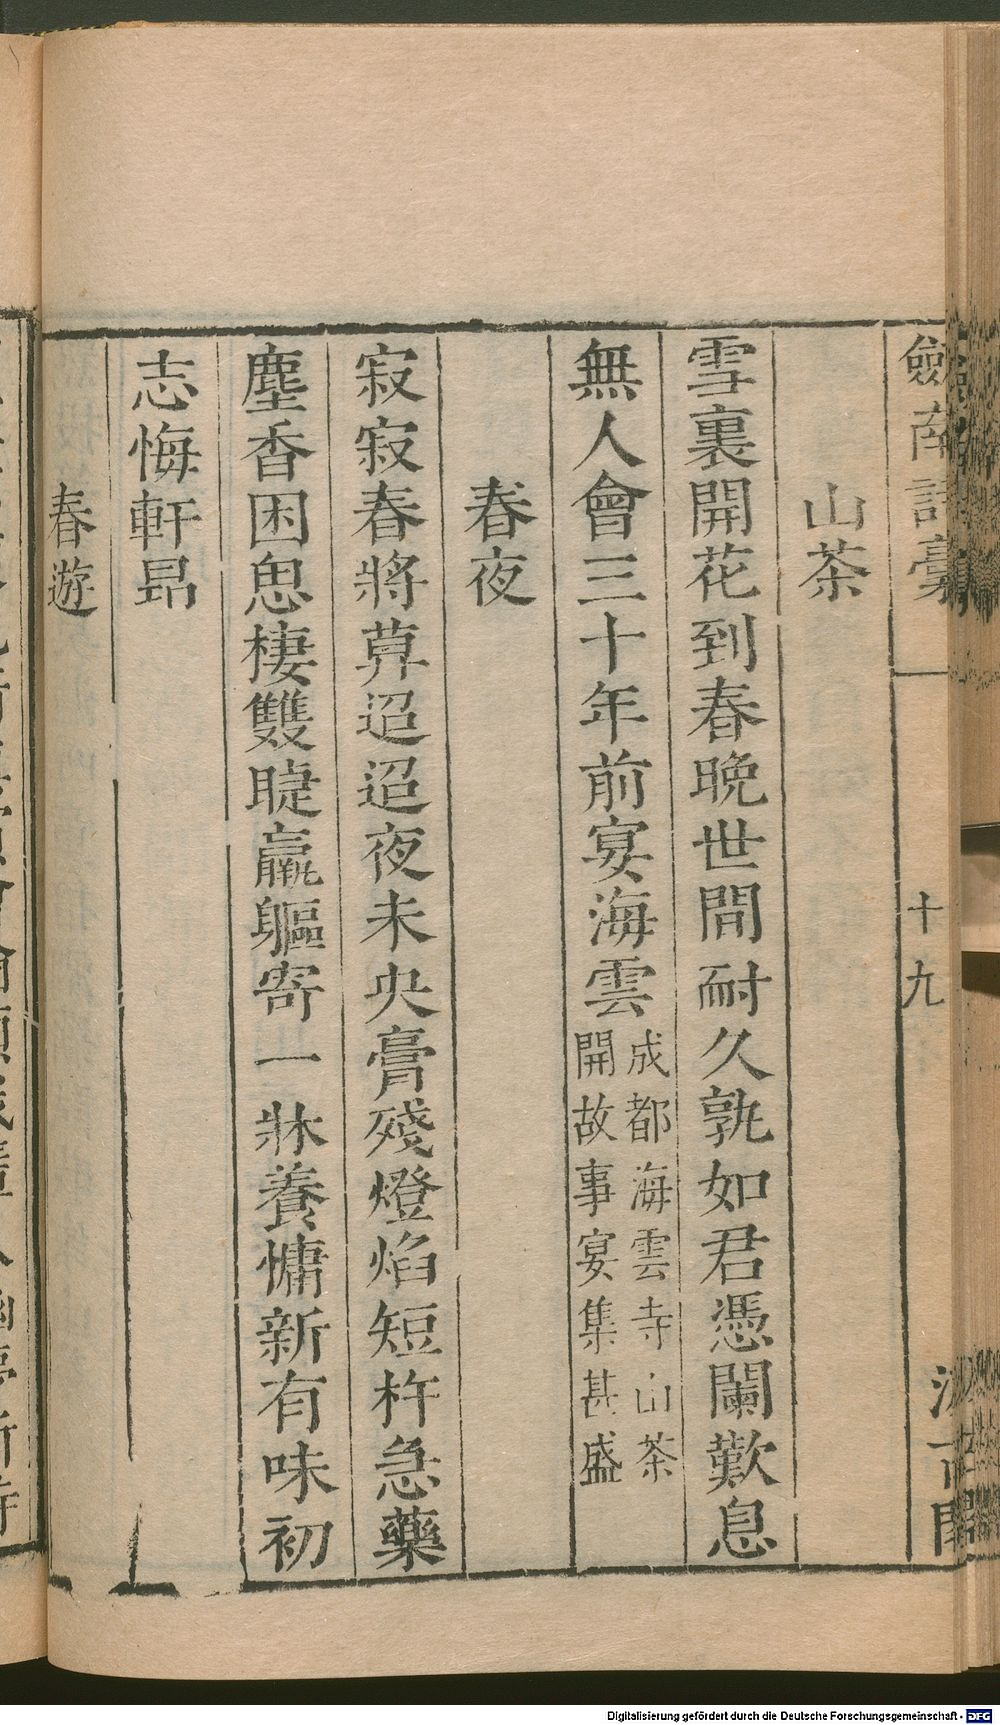 劒南詩稾
十九
山茶
雪裏開花到春晩世間耐久孰如君憑闌歎息
無人會三十年前宴海雲成都海雲寺山茶
開故事宴集甚盛
春夜
寂寂春將莫迢迢夜未央膏殘燈焰短杵急藥
塵香困思棲雙睫羸軀寄一牀養慵新有味初
志悔軒昻
春遊
Digitalisierung gefördert durch die Deutsche Forschungsgemeinschaft - DFG